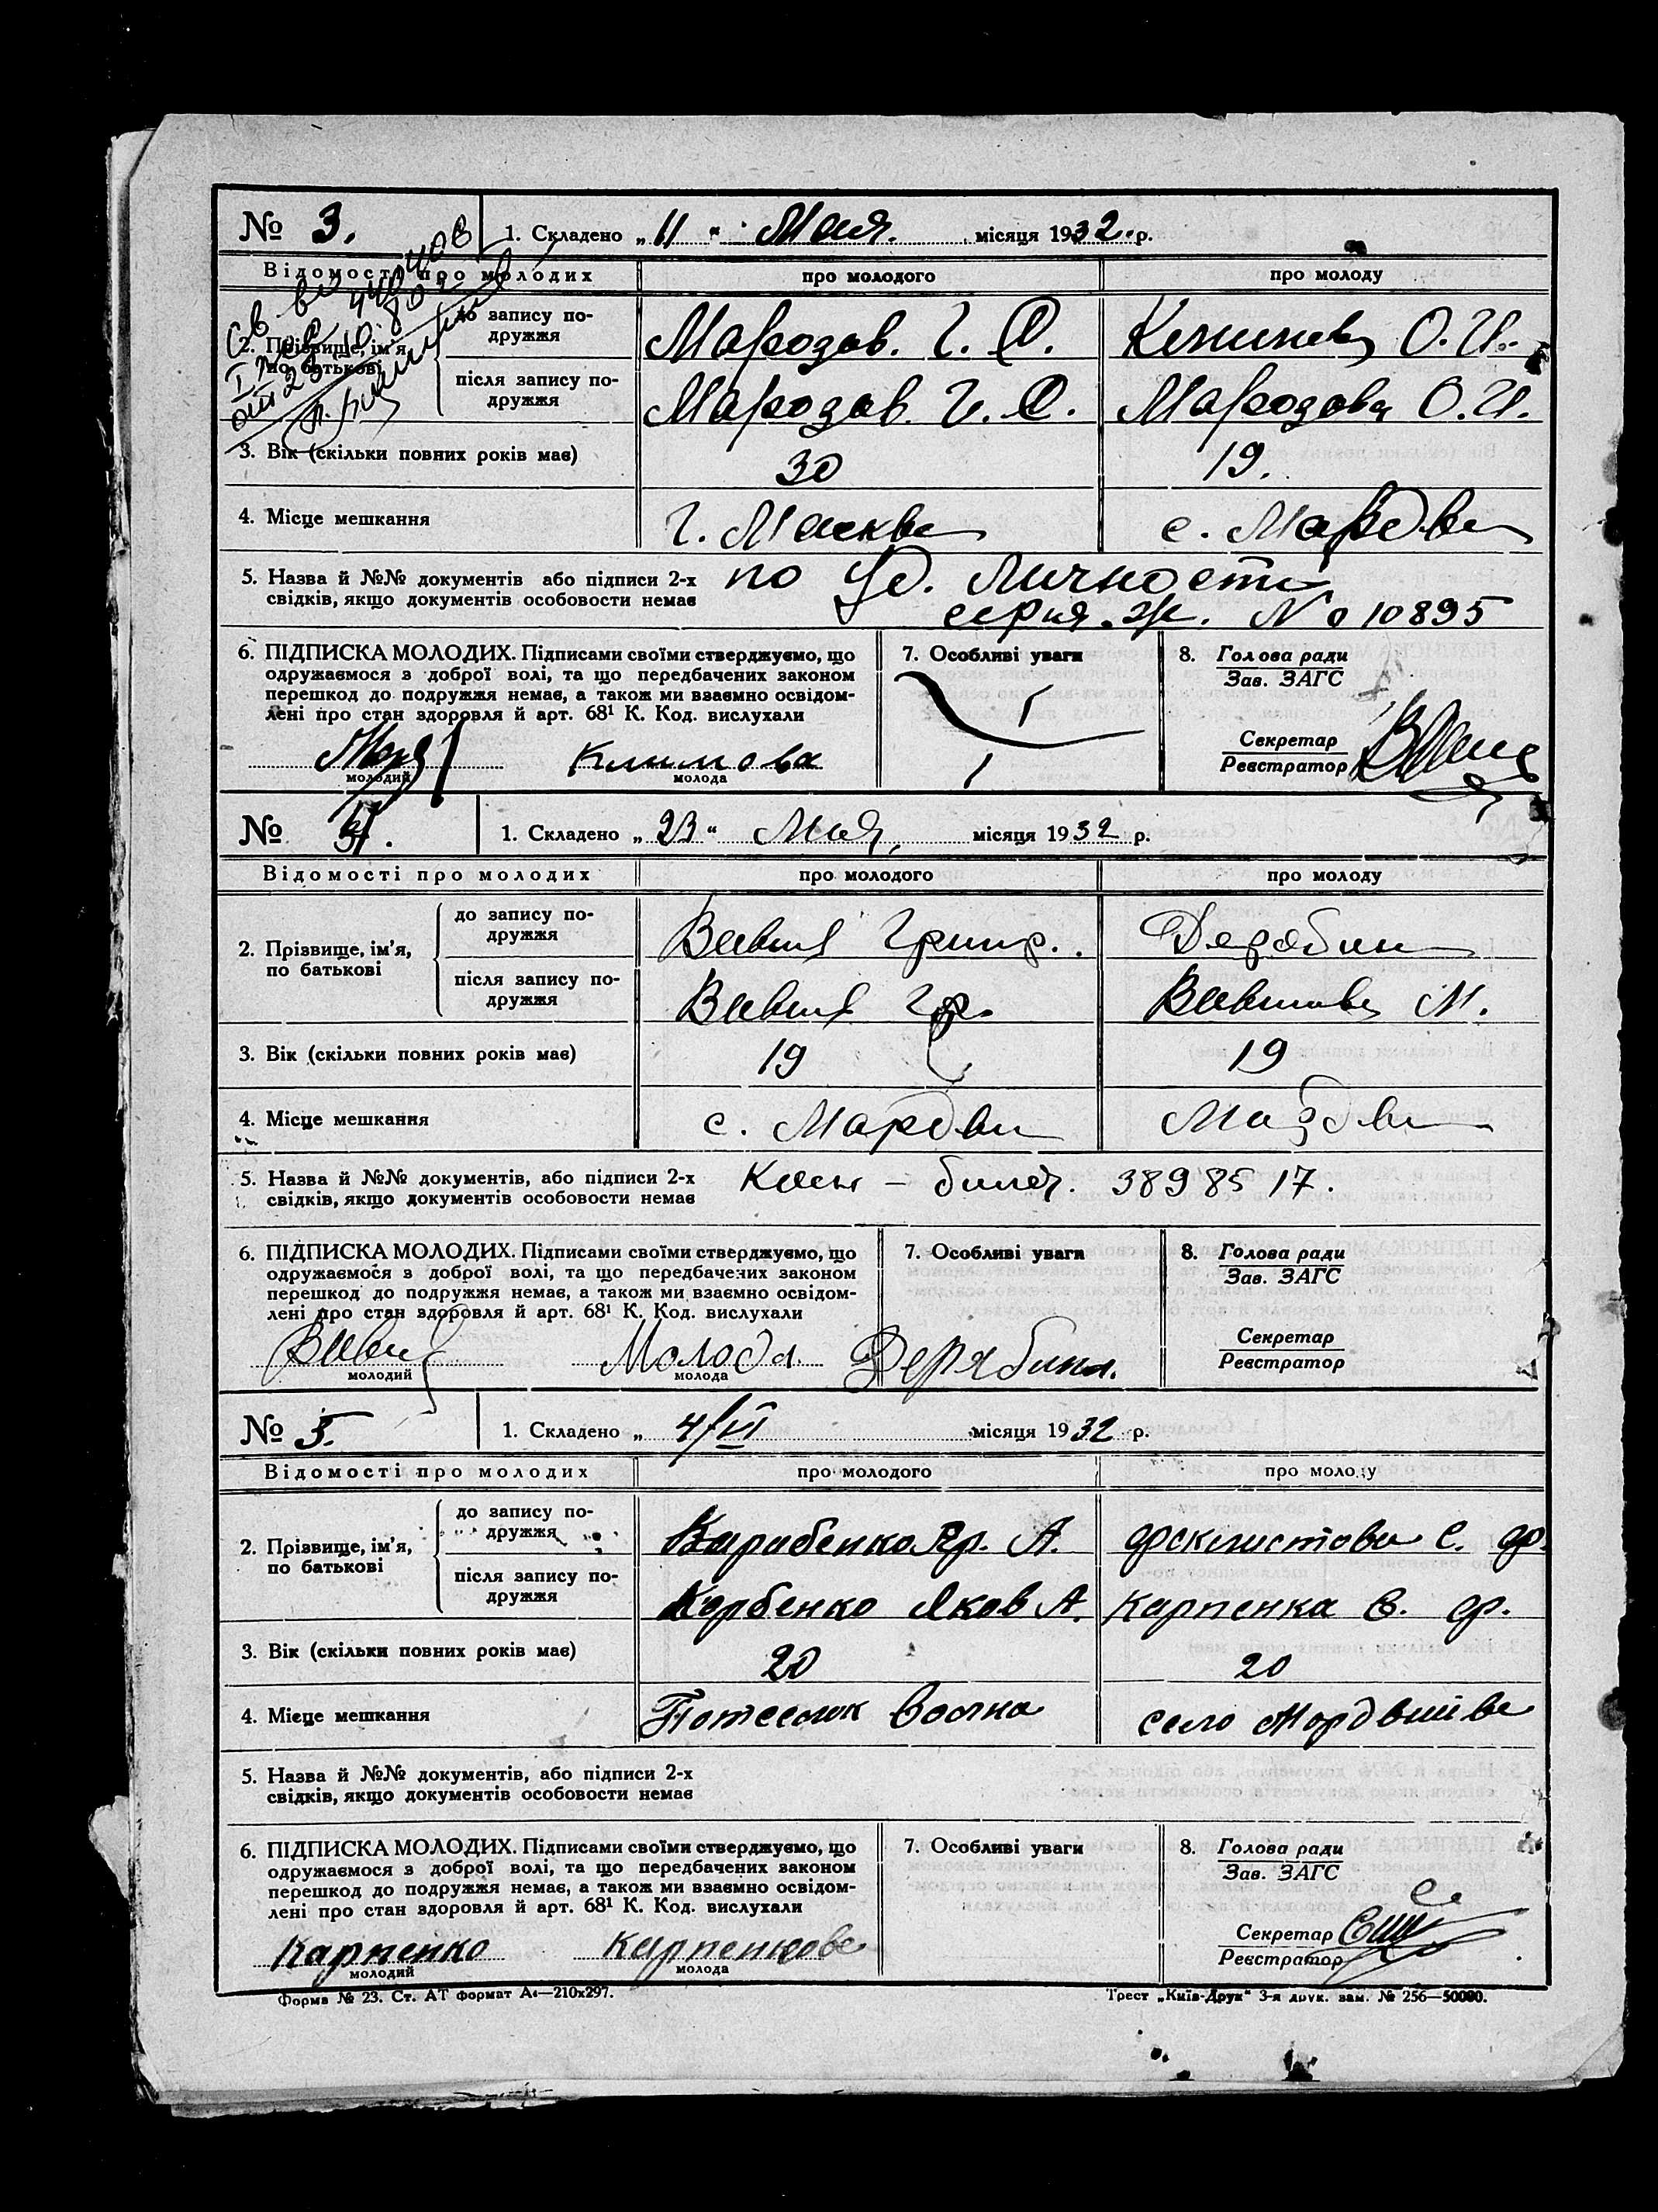 № 3. 1. Складено „ 11 " Мая. місяця 1932. р.
Відомості про молодих про молодого про молоду
2. Прізвище, ім'я, по батькові
до запису по-
дружжя
Марозов. Г. О.
О. И.
після запису по-
дружжя
Марозов. Г. О. Марозова О. И.
3. Вік (скільки повних років має) 30 19.
4. Місце мешкання г. Масква с. Мардви
5. Назва й №№ документів або підписи 2-х по Уд. Личности
свідків, якщо документів особовости немає серия. Ж. № 10895
6. ПІДПИСКА МОЛОДИХ. Підписами своїми стверджуємо, що
одружаємося з доброї волі, та що передбачених законом
перешкод до подружжя немає, а також ми взаємно освідом-
лені про стан здоровля й арт. 68¹ К. Код. вислухали
Климова
молодий молода
7. Особливі уваги
8. Голова ради
Зав. ЗАГС
Секретар
Реєстратор
№ 4. 1. Складено „ 23 " Мая, місяця 1932 р.
Відомості про молодих про молодого про молоду
2. Прізвище, ім'я,
по батькові
до запису по-
дружжя
Вавил Григ. Дерабин
після запису по-
дружжя
Вавил Гр. Вавилова М.
3. Вік (скільки повних років має) 19 19
4. Місце мешкання с. Мардви Мардви
5. Назва й №№ документів, або підписи 2-х билет. 3898517.
свідків, якщо документів особовости немає
6. ПІДПИСКА МОЛОДИХ. Підписами своїми стверджуємо, що
одружаємося з доброї волі, та що передбачених законом
перешкод до подружжя немає, а також ми взаємно освідом-
лені про стан здоровля й арт. 68¹ К. Код. вислухали
Молода. Дерябина.
молодий молода
7. Особливі уваги
8. Голова ради
Зав. ЗАГС
Секретар
Реєстратор
№ 5. 1. Складено „ 4/VI місяця 1932 р.
Відомості про молодих про молодого про молоду
2. Прізвище, ім'я,
по батькові
до запису по-
дружжя
А. Фсклистова С. Ф.
після запису по-
дружжя
Корбенко Яков А. Карпенка С. Ф.
3. Вік (скільки повних років має) 20 20
4. Місце мешкання село
5. Назва й №№ документів, або підписи 2-х
свідків, якщо документів особовости немає
6. ПІДПИСКА МОЛОДИХ. Підписами своїми стверджуємо, що
одружаємося з доброї волі, та що передбачених законом
перешкод до подружжя немає, а також ми взаємно освідом-
лені про стан здоровля й арт. 68¹ К. Код. вислухали
Карпенко Карпенкова
молодий молода
7. Особливі уваги
8. Голова ради
Зав. ЗАГС
Секретар
Реєстратор
Форма № 23. Ст. АТ формат А4—210х297. Трест „Київ-Друк" 3-я друк. зам. № 256—50000.